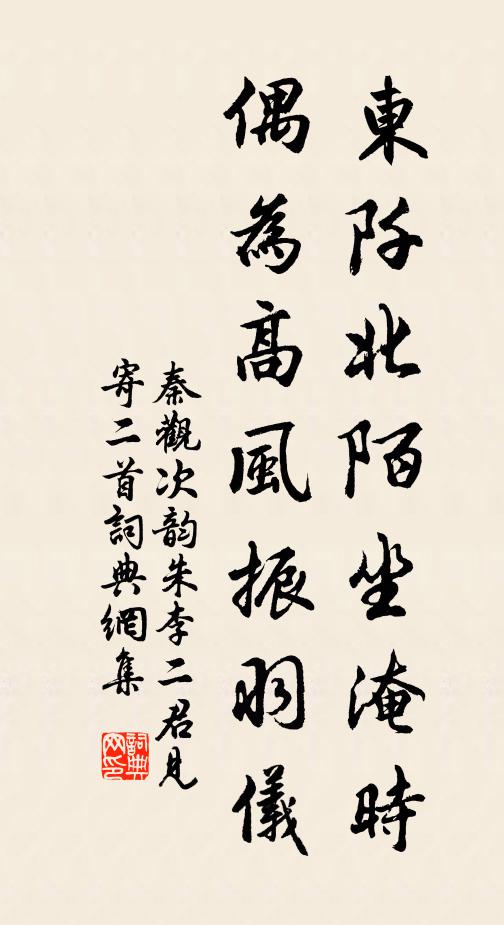 東阡北陌坐淹時
偶為高風振羽儀
秦觀次韵朱李二君見
寄二首詞典網集
詞典
网印